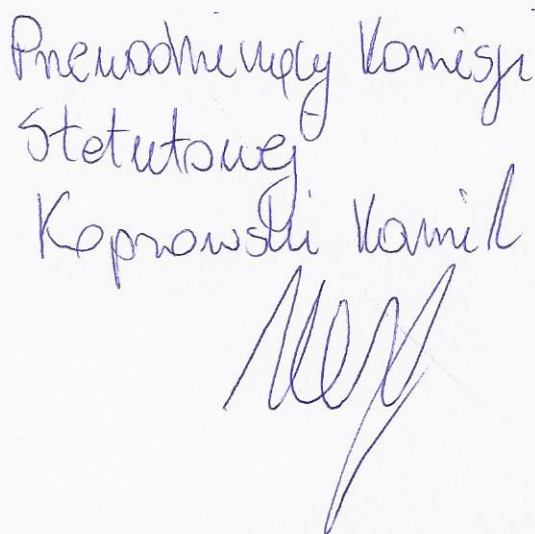 Przewodniczący Komisji
Statutowej
Koprowski Kamil